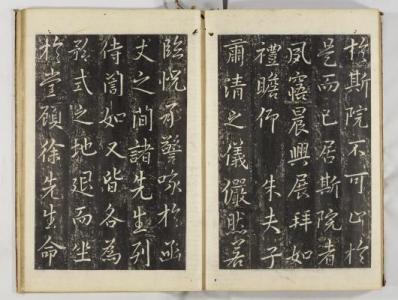 於斯院不可止於
是而已居斯院者
夙寤晨興展拜如
禮瞻仰 朱夫子
肅清之儀儼然若
臨怳承警咳於函
丈之間諸先生列
侍誾如又皆各為
矜式之地退而坐
於堂顧徐先生命